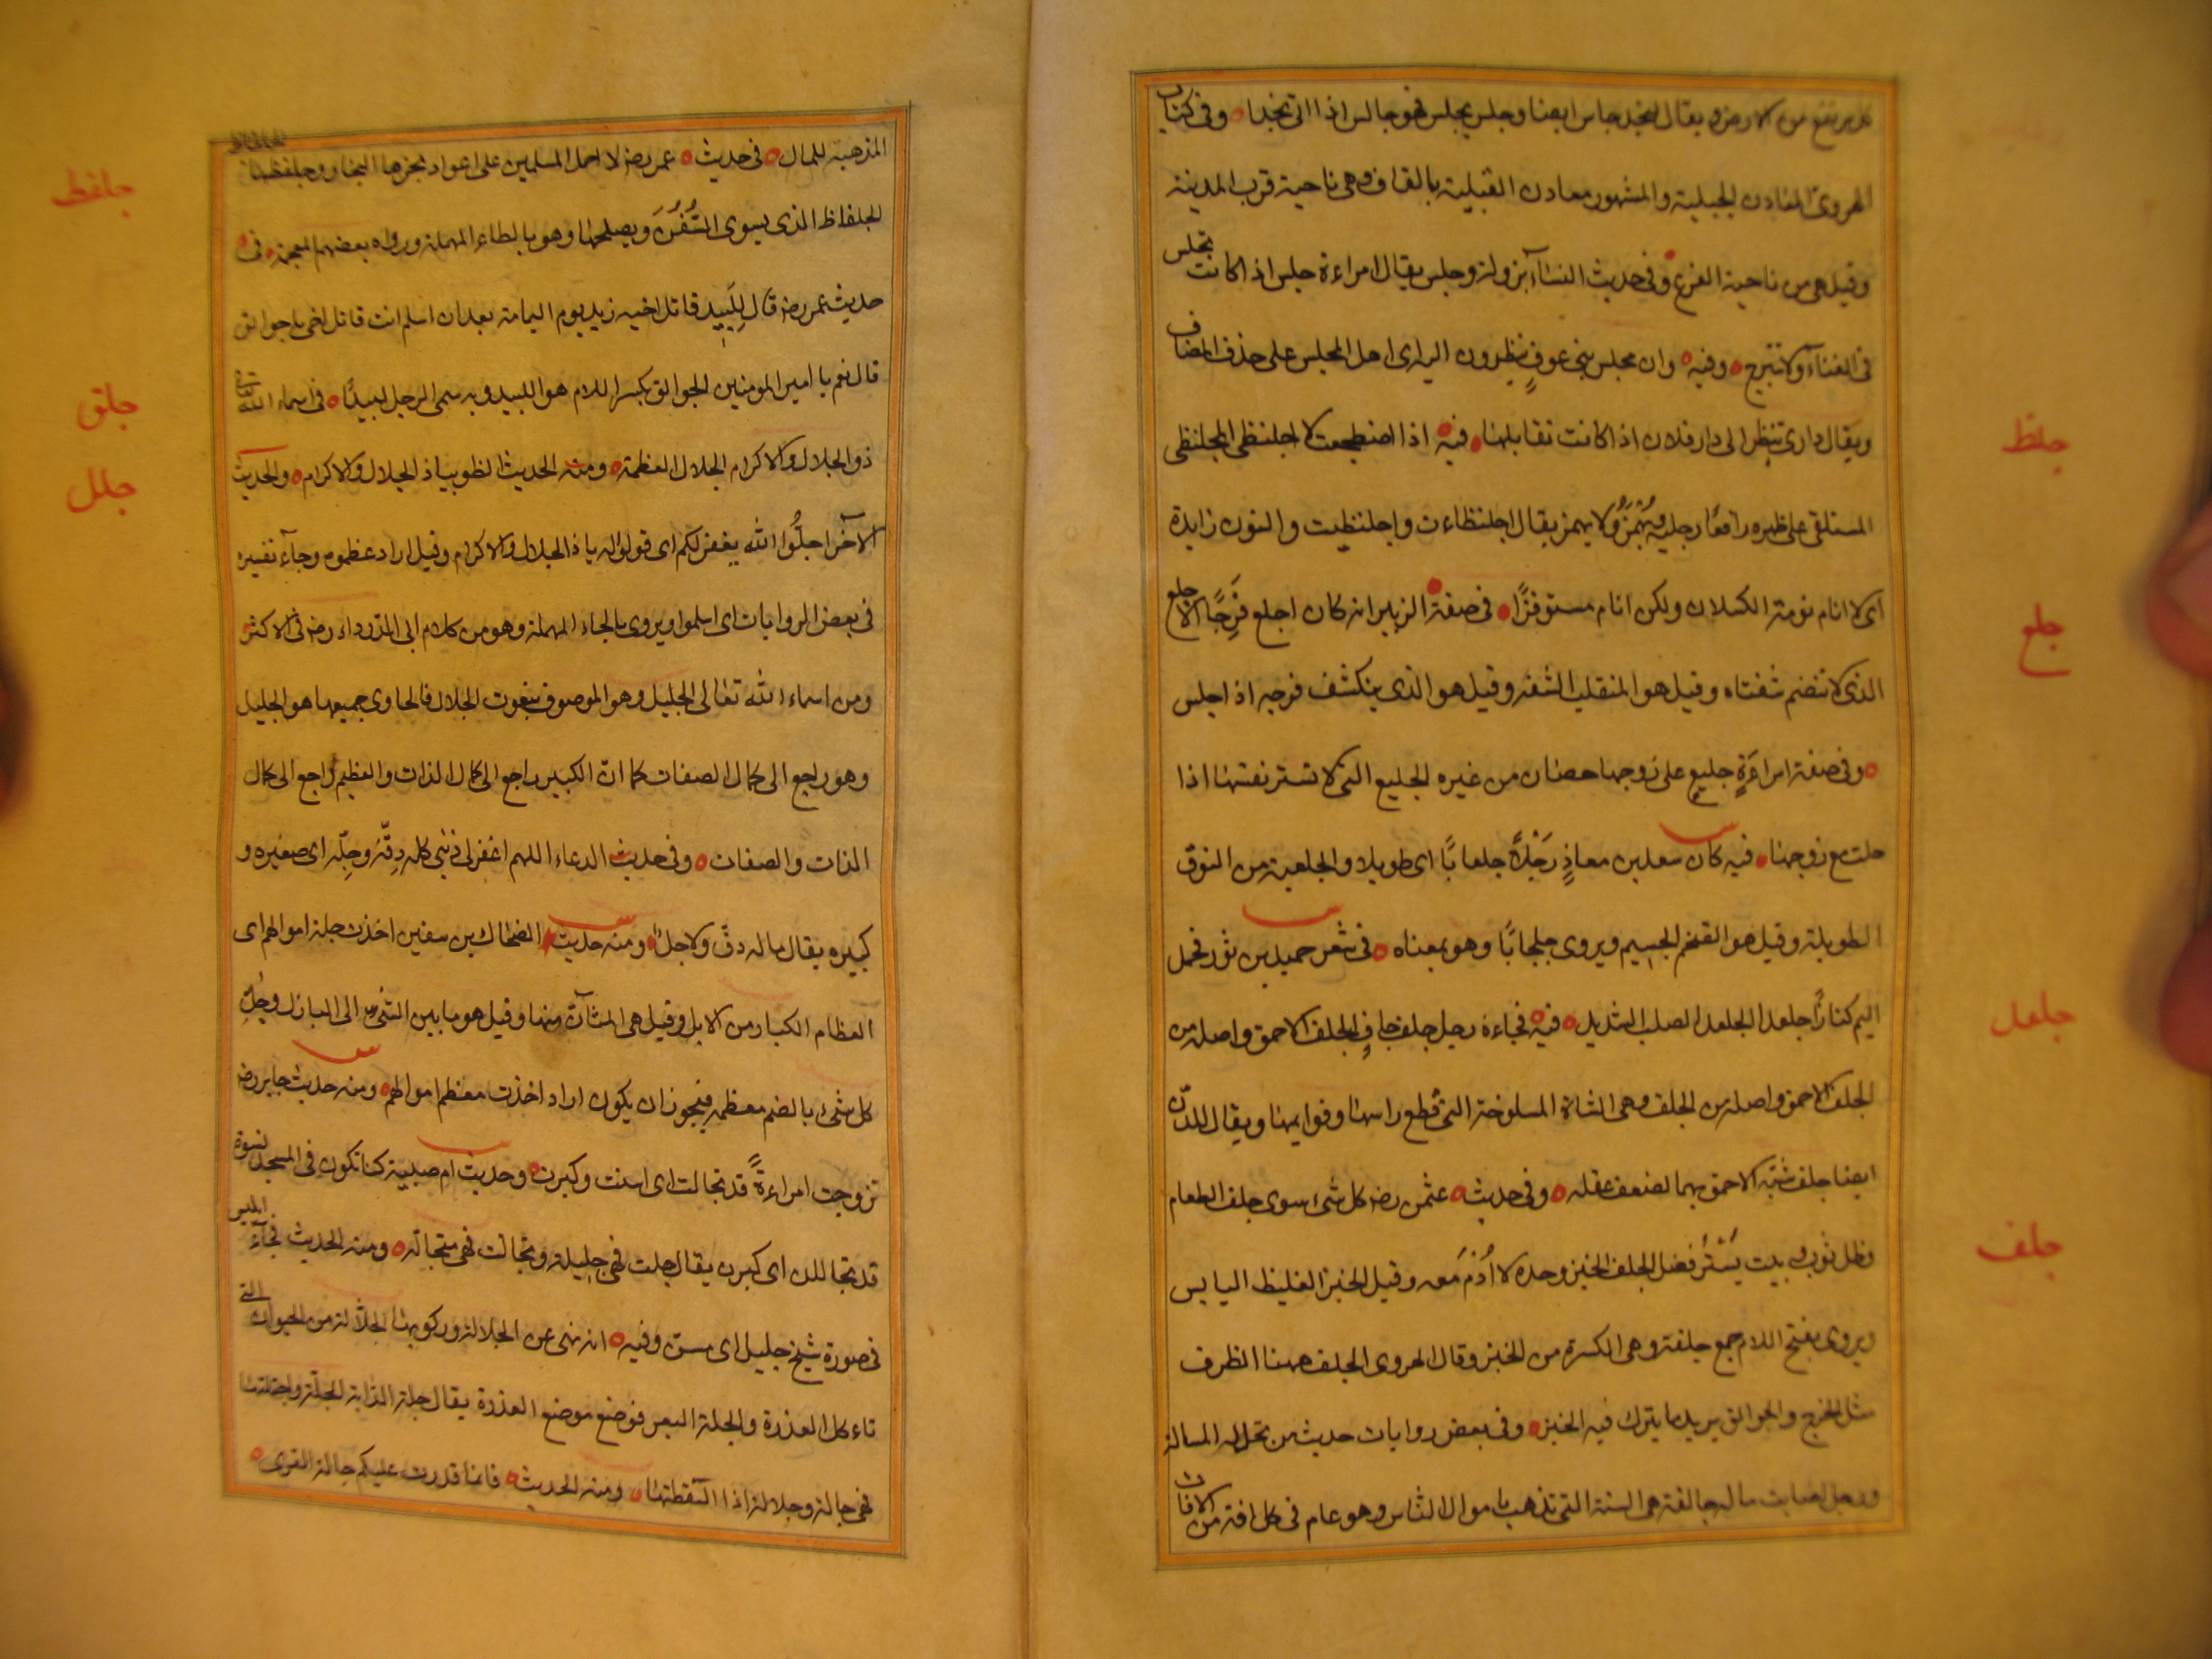 كل مرتفع من الارض ويقال لنجد جلس ايضا وجلس يجلس فهو جالس اذا اتى نجدا وفى كتاب
الهروى المعادن الجبلية والمشهور معادن القبلية بالقاف وهى ناحية قرب المدينة
وقيل هى من ناحية الفرع وفى حديث النساء بزولة وجلس يقال امراءة جلس اذا كانت تجلس
فى الفناء ولا تتبرج وفيه وان مجلس بنى عوفٍ ينظرون اليه اى اهل المجلس على حذف المضاف
ويقال دارى تنظر الى دار فلان اذا كانت تقابلها فيه اذا اضطجعت لا اجلنظى المجلنظى
جلظ
المستلقى على ظهره رافعًا رجليه يُهْمَزُ ولا يهمز يقال اجلنظاءت واجلنظيت والنون زايدة
اى لا انام نومة الكسلان ولكن انام مستوفزًا فى صفة الزبير انه كان اجلع فَرِجًا الاجلع
جلع
الذى لا تنضم شفتاه وقيل هو المنقلب الشفه وقيل هو الذى ينكشف فرجه اذا جلس
وفى صفة امراءَةٍ جليعٍ على زوجها حصان من غيره الجليع التى لا تستر نفسها اذا
خلت مع زوجها فيه كان سعد بن معاذٍ رَجُلاً جلعابًا اى طويلا والجلعبة من النوق
الطويلة وقيل هو الضخم الجسيم ويروى جلحابًا وهو بمعناه فى شعر حميد بن ثور فحمل
الهم كنازًا جلعد الجلعد الصلب الشديد فيه فجاءه رجل جلف جافٍ الجلف الاحمق واصله من
جلعد
الجلف الاحمق واصله من الجلف وهى الشاة المسلوخة التى قُطع راسها وقوايمها ويقال للدّن
ايضا جلف شبّه الاحمق بهما لضعف عقله وفى حديث عثمن رضه كل شىء سوى جلف الطعام
وظل ثوب وبيت يَسْتُرُ فضل الجلف الخبز وحده لا اُدْمَ معه وقيل الخبز الغليظ اليابس
جلف
ويروى بفتح اللام جمع جلفة وهى الكسرة من الخبز وقال الهروى الجلف ههنا الظرف
مثل الخرج والجوالق يريد ما يترك فيه الخبز وفى بعض روايات حديث من تحل له المسالة
ورجل اصابت ماله جالفة هى السنة التى تذهب باموال الناس وهو عام فى كل افة من الافات
المذهبة للمال فى حديث عمر رضه لا احمل المسلمين على اعواد نجرها النجار وجلفظها
جلفظ
الجلفاظ الذى يسوى السُّفُنَ ويصلحها وهو بالطاء المهملة ورواه بعضهم المعجمة فى
حديث عمر رضه قال لِلَبيد قاتل اخيه زيد يوم اليمامة بعد ان اسلم انت قاتل اخى يا جوالق
جلق
قال نعم يا امير المومنين الجوالق بكسر اللام هو اللبيد وبه سمى الرجل لبيدًا فى اسماء الله تعالى
ذو الجلال والاكرام الجلال العظمة ومنه الحديث الظوا بياذ الجلال والاكرام والحديث
جلل
الآخر اجلُّوا الله يغفر لكم اى قولوا له ياذا الجلال والاكرام وقيل اراد عظموه وجاء تفسيره
فى بعض الروايات اى اسلموا ويروى بالحاء المهملة وهو من كلام ابى الدرداء رضه فى الاكثر
ومن اسماء الله تعالى الجليل وهو الموصوف بنعوت الجلال فالحاوى جميعها هو الجليل
وهو راجع الى كمال الصفات كما انّ الكبير راجع الى كمال الذات والعظيم راجع الى كمال
الذات والصفات وفى حديث الدعاء اللهم اغفر لى ذنبى كله دِقّه وجِلّه اى صغيره و
كبيره يقال ماله دقّ ولا جلّ ومنه حديث الضحاك بن سفين اخذت جلة اموالهم اى
العظام الكبار من الابل وقيل هى المسانّ منها وقيل هو ما بين الثنى الى البازل وجُلّ
كل شىء بالضم معظمه فيجوز ان يكون اراد اخذت معظم اموالهم ومنه حديث جابر رضه
تزوجت امراءةً قد تجالت اى اسنت وكبرت وحديث ام صبية كنا نكون فى المسجد نسوة
قد تجاللن اى كبرن يقال جلت فهى جليلة وتجالت فهى متجالة ومنه الحديث فجاء ابليس
فى صورة شيخ جليل اى مسنّ وفيه انه نهى عن الجلالة وركوبها الجلّالة من الحيوان التى
تاءكل العذرة والجلة البعر فوضع موضع العذرة يقال جلت الدابة الجلّة واجتلتها
فهى جالة وجلالة اذا التقطتها ومنه الحديث فانما قدرت عليكم جالة القرى